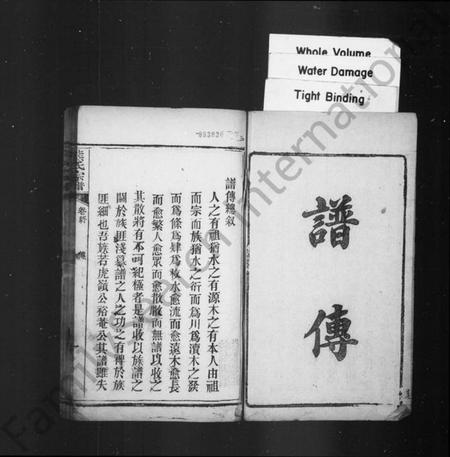 Whole Volume
Water Damage
Tight Binding
譜傳
譜傳總叙
人之有祖猶水之有源木之有本人由祖
而宗而族猶水之衍而爲川爲瀆木之發
而爲條爲肄爲枚水愈流而愈遠木愈長
而愈繁人愈眾而愈散散而無譜以收之
其散將有不可紀極者是譜收以族譜之
關於族匪淺纂譜之人之功之有裨於族
匪細也吾族若虎嶺公裕菴公其譜雖失
氏宗譜
卷